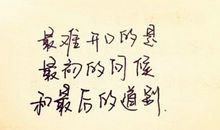 最难开口的是
最初的问候
和最后的道别.